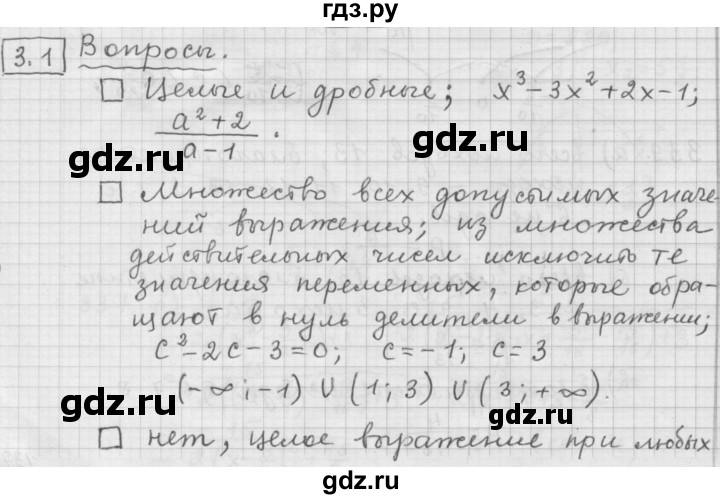 гдз.ру
3.1 Вопросы.
□ Целые и дробные; x³-3x²+2x-1;
(a²+2)/(a-1).
gdz.ru gdz.ru
□ Множество всех допустимых значе-
ний выражения; из множества
действительных чисел исключить те
значения переменных, которые обра-
щают в нуль делители в выражении;
c²-2c-3=0; c=-1; c=3
(-∞;-1) ∪ (1;3) ∪ (3;+∞).
gdz.ru gdz.ru
□ нет, целое выражение при любых
gdz.ru